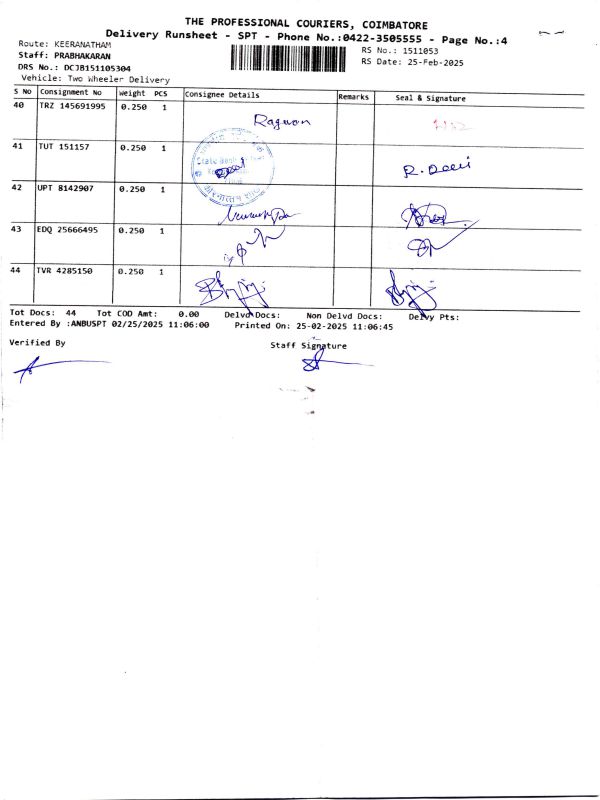 THE PROFESSIONAL COURIERS, COIMBATORE
Delivery Runsheet - SPT - Phone No.:0422-3505555 - Page No.:4
Route: KEERANATHAM
RS No.: 1511053
Staff: PRABHAKARAN
RS Date: 25-Feb-2025
DRS No.: DCJB151105304
Vehicle: Two Wheeler Delivery
S No Consignment No Weight PCS Consignee Details Remarks Seal & Signature
40 TRZ 145691995 0.250 1
Ragwan
41 TUT 151157 0.250 1
State Bank
R. Devi
42 UPT 8142907 0.250 1
43 EDQ 25666495 0.250 1
44 TVR 4285150 0.250 1
Tot Docs: 44 Tot COD Amt: 0.00 Delvd Docs: Non Delvd Docs: Delvy Pts:
Entered By :ANBUSPT 02/25/2025 11:06:00 Printed On: 25-02-2025 11:06:45
Verified By Staff Signature